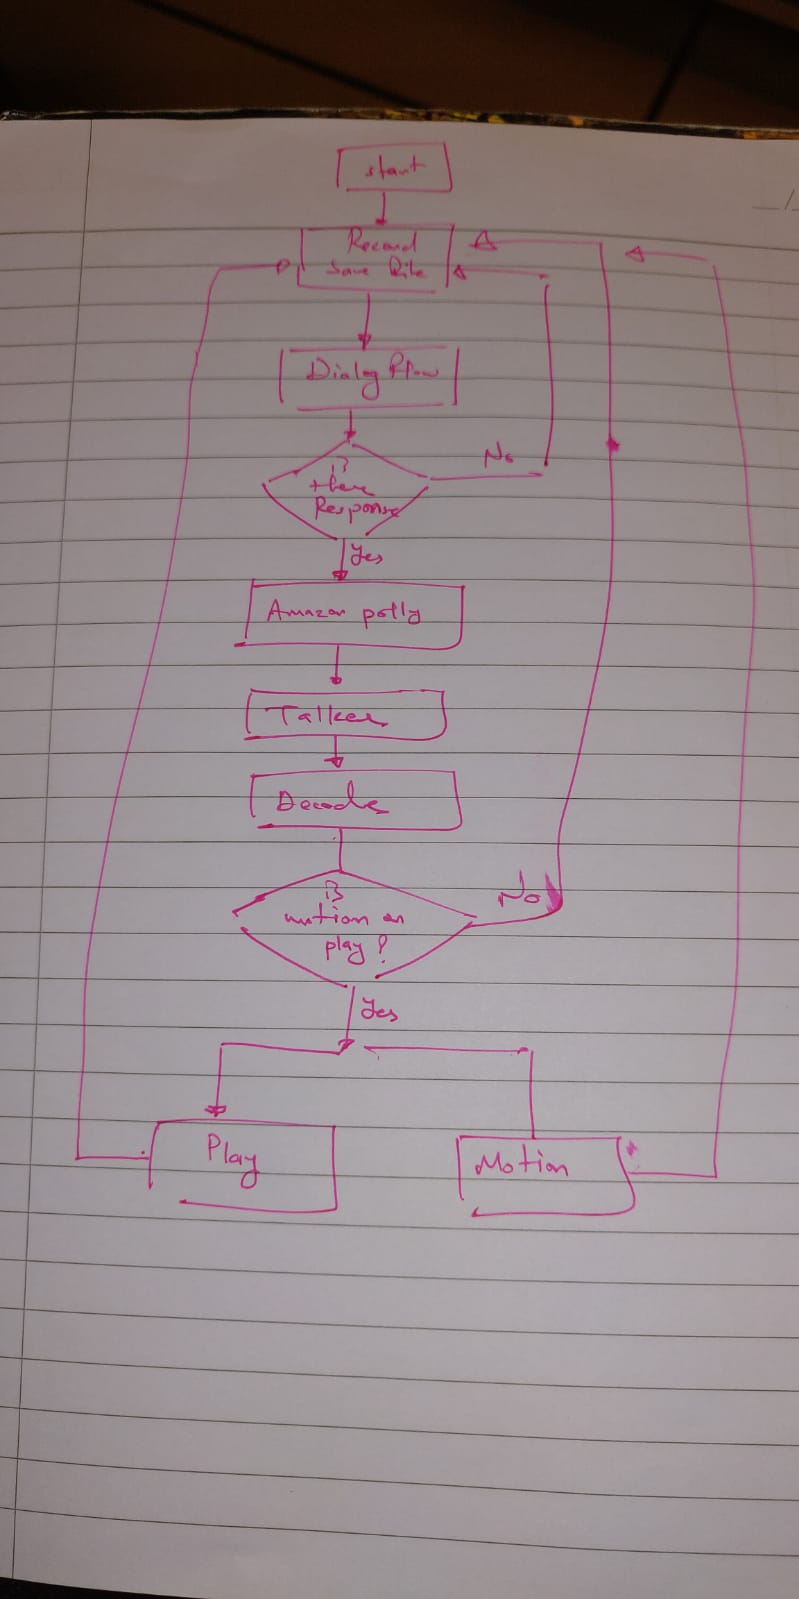 start
Record
Save file
Dialog flow
No
is
there
Response
Yes
Amazon polly
Talker
Decode
is
No
motion or
play?
Yes
Play
Motion